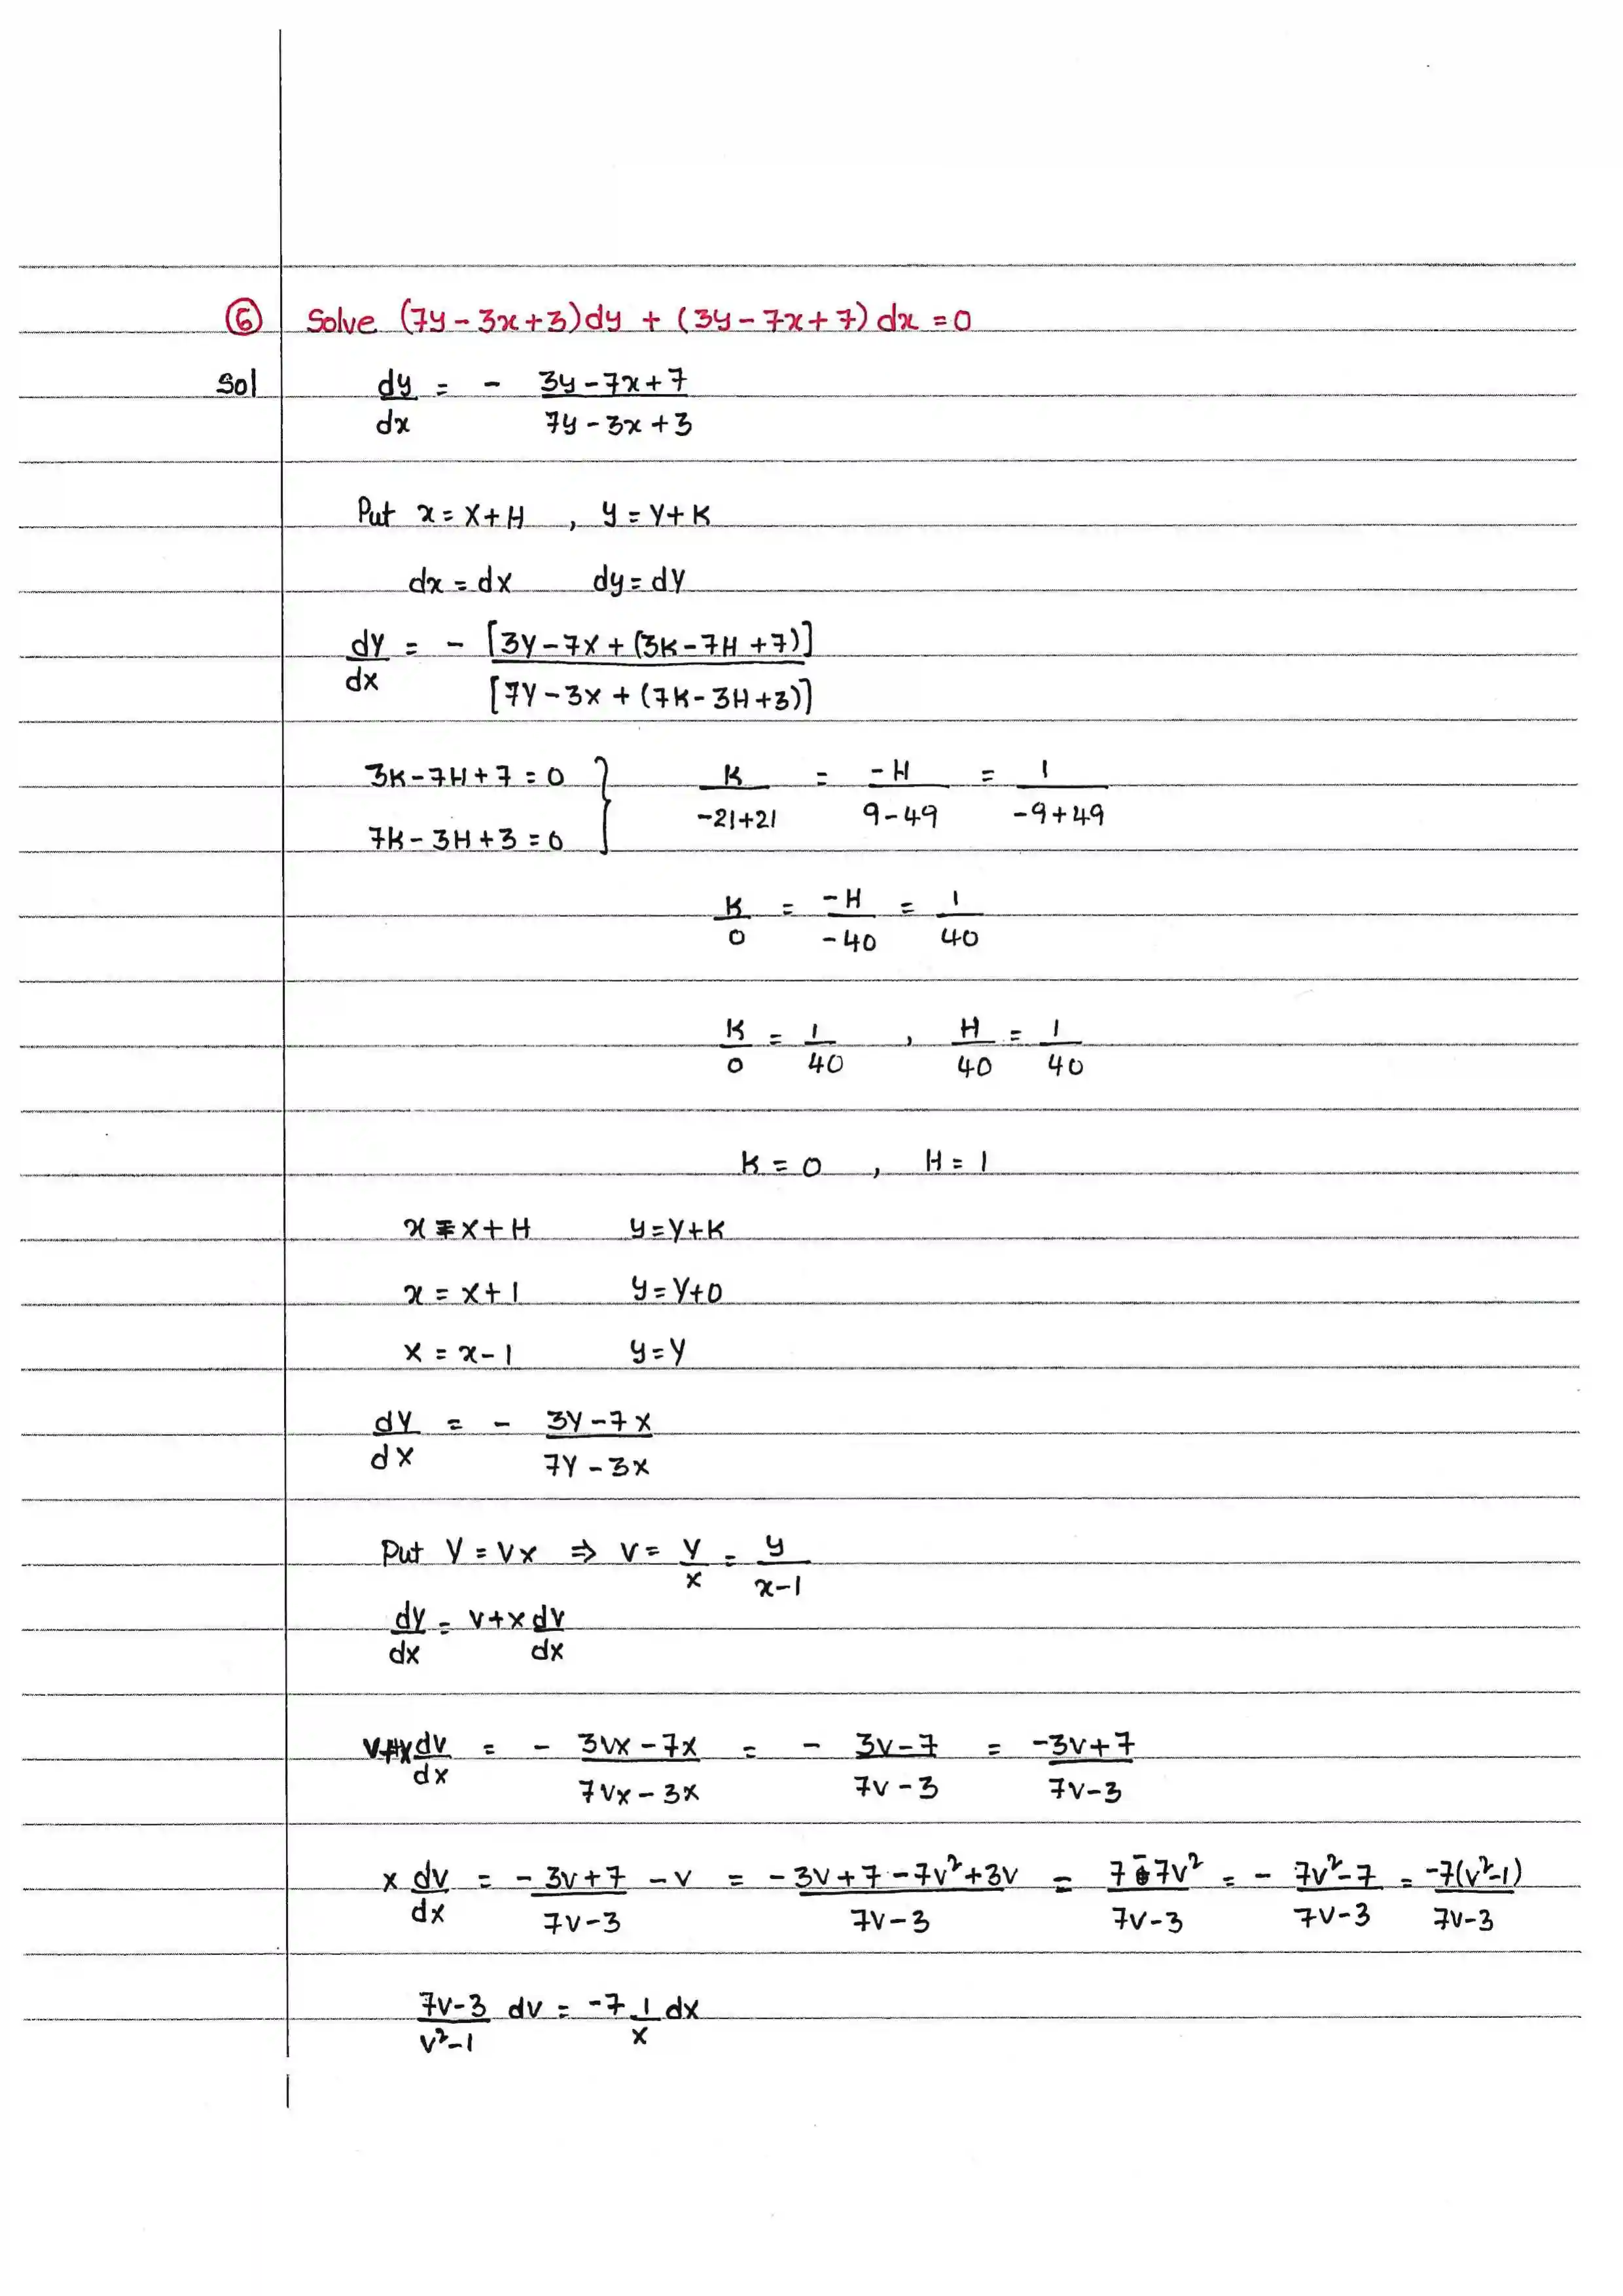 ⑥ Solve (7y - 3x + 3)dy + (3y - 7x + 7) dx = 0
Sol dy/dx = - (3y - 7x + 7)/(7y - 3x + 3)
Put x = X + H , y = Y + K
dx = dX dy = dY
dY/dX = - [3Y - 7X + (3K - 7H + 7)]/[7Y - 3X + (7K - 3H + 3)]
3K - 7H + 7 = 0 } K/(-21+21) = -H/(9-49) = 1/(-9+49)
7K - 3H + 3 = 0
K/0 = -H/-40 = 1/40
K/0 = 1/40 , H/40 = 1/40
K = 0 , H = 1
x = X + H y = Y + K
x = X + 1 y = Y + 0
X = x - 1 y = Y
dY/dX = - (3Y - 7X)/(7Y - 3X)
Put Y = VX ⇒ V = Y/X = y/(x-1)
dY/dX = V + X dV/dX
V + X dV/dX = - (3VX - 7X)/(7VX - 3X) = - (3V - 7)/(7V - 3) = (-3V + 7)/(7V - 3)
X dV/dX = (-3V + 7)/(7V - 3) - V = (-3V + 7 - 7V² + 3V)/(7V - 3) = (7 - 7V²)/(7V - 3) = - (7V² - 7)/(7V - 3) = -7(V² - 1)/(7V - 3)
(7V - 3)/(V² - 1) dV = -7 1/X dX